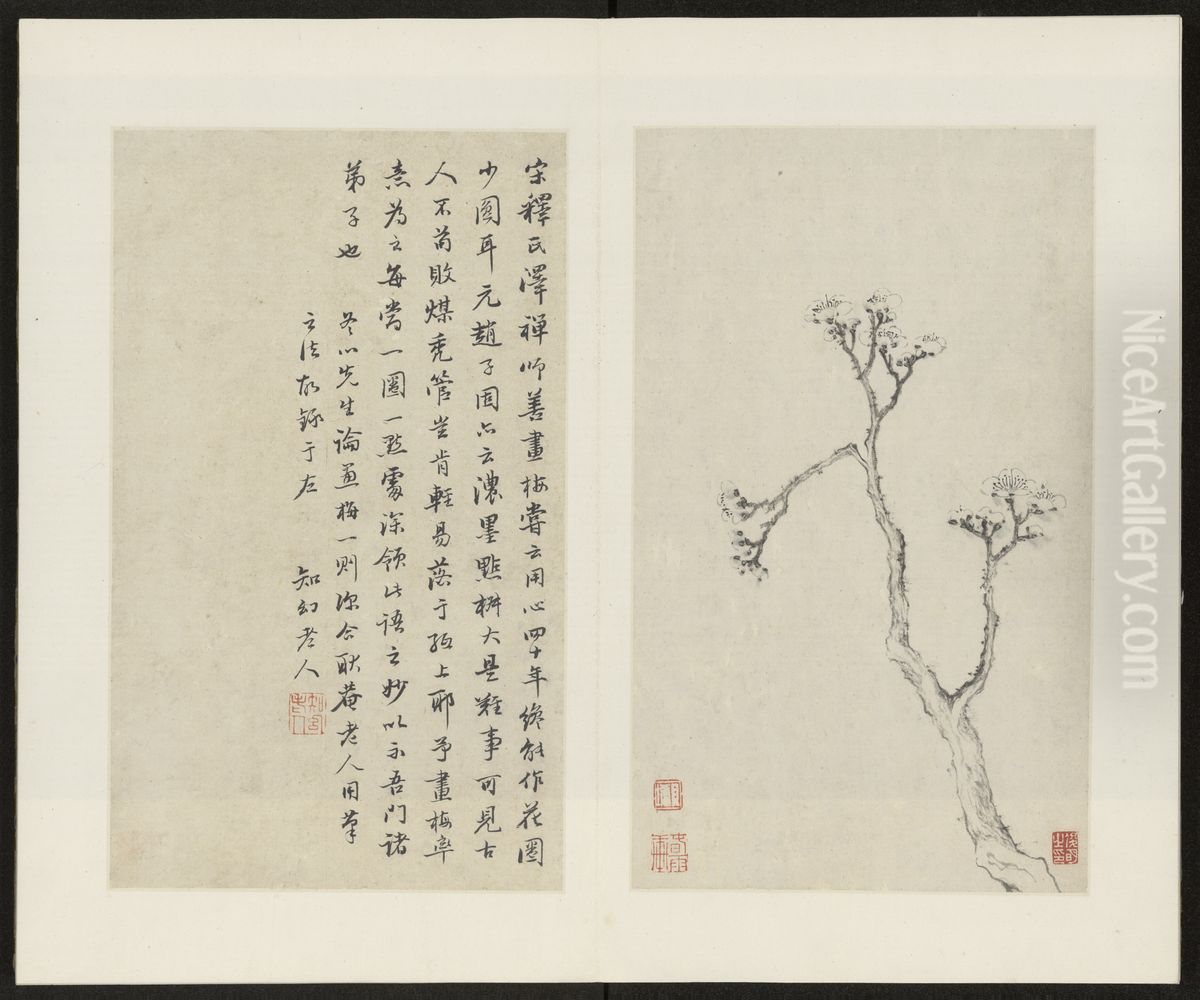 宋釋氏澤禪師善畫梅嘗云用心四十年纔能作花圈
少圓耳元趙子固亦云濃墨點椒大是難事可見古
人不苟敗煤禿管豈肯輕易落于紙上耶予畫梅率
意為之每當一圈一點處深領此語之妙以示吾門諸
弟子也　冬心先生論畫梅一則深合耿菴老人用筆
之法故錄于左　知幻老人
NiceArtGallery.com